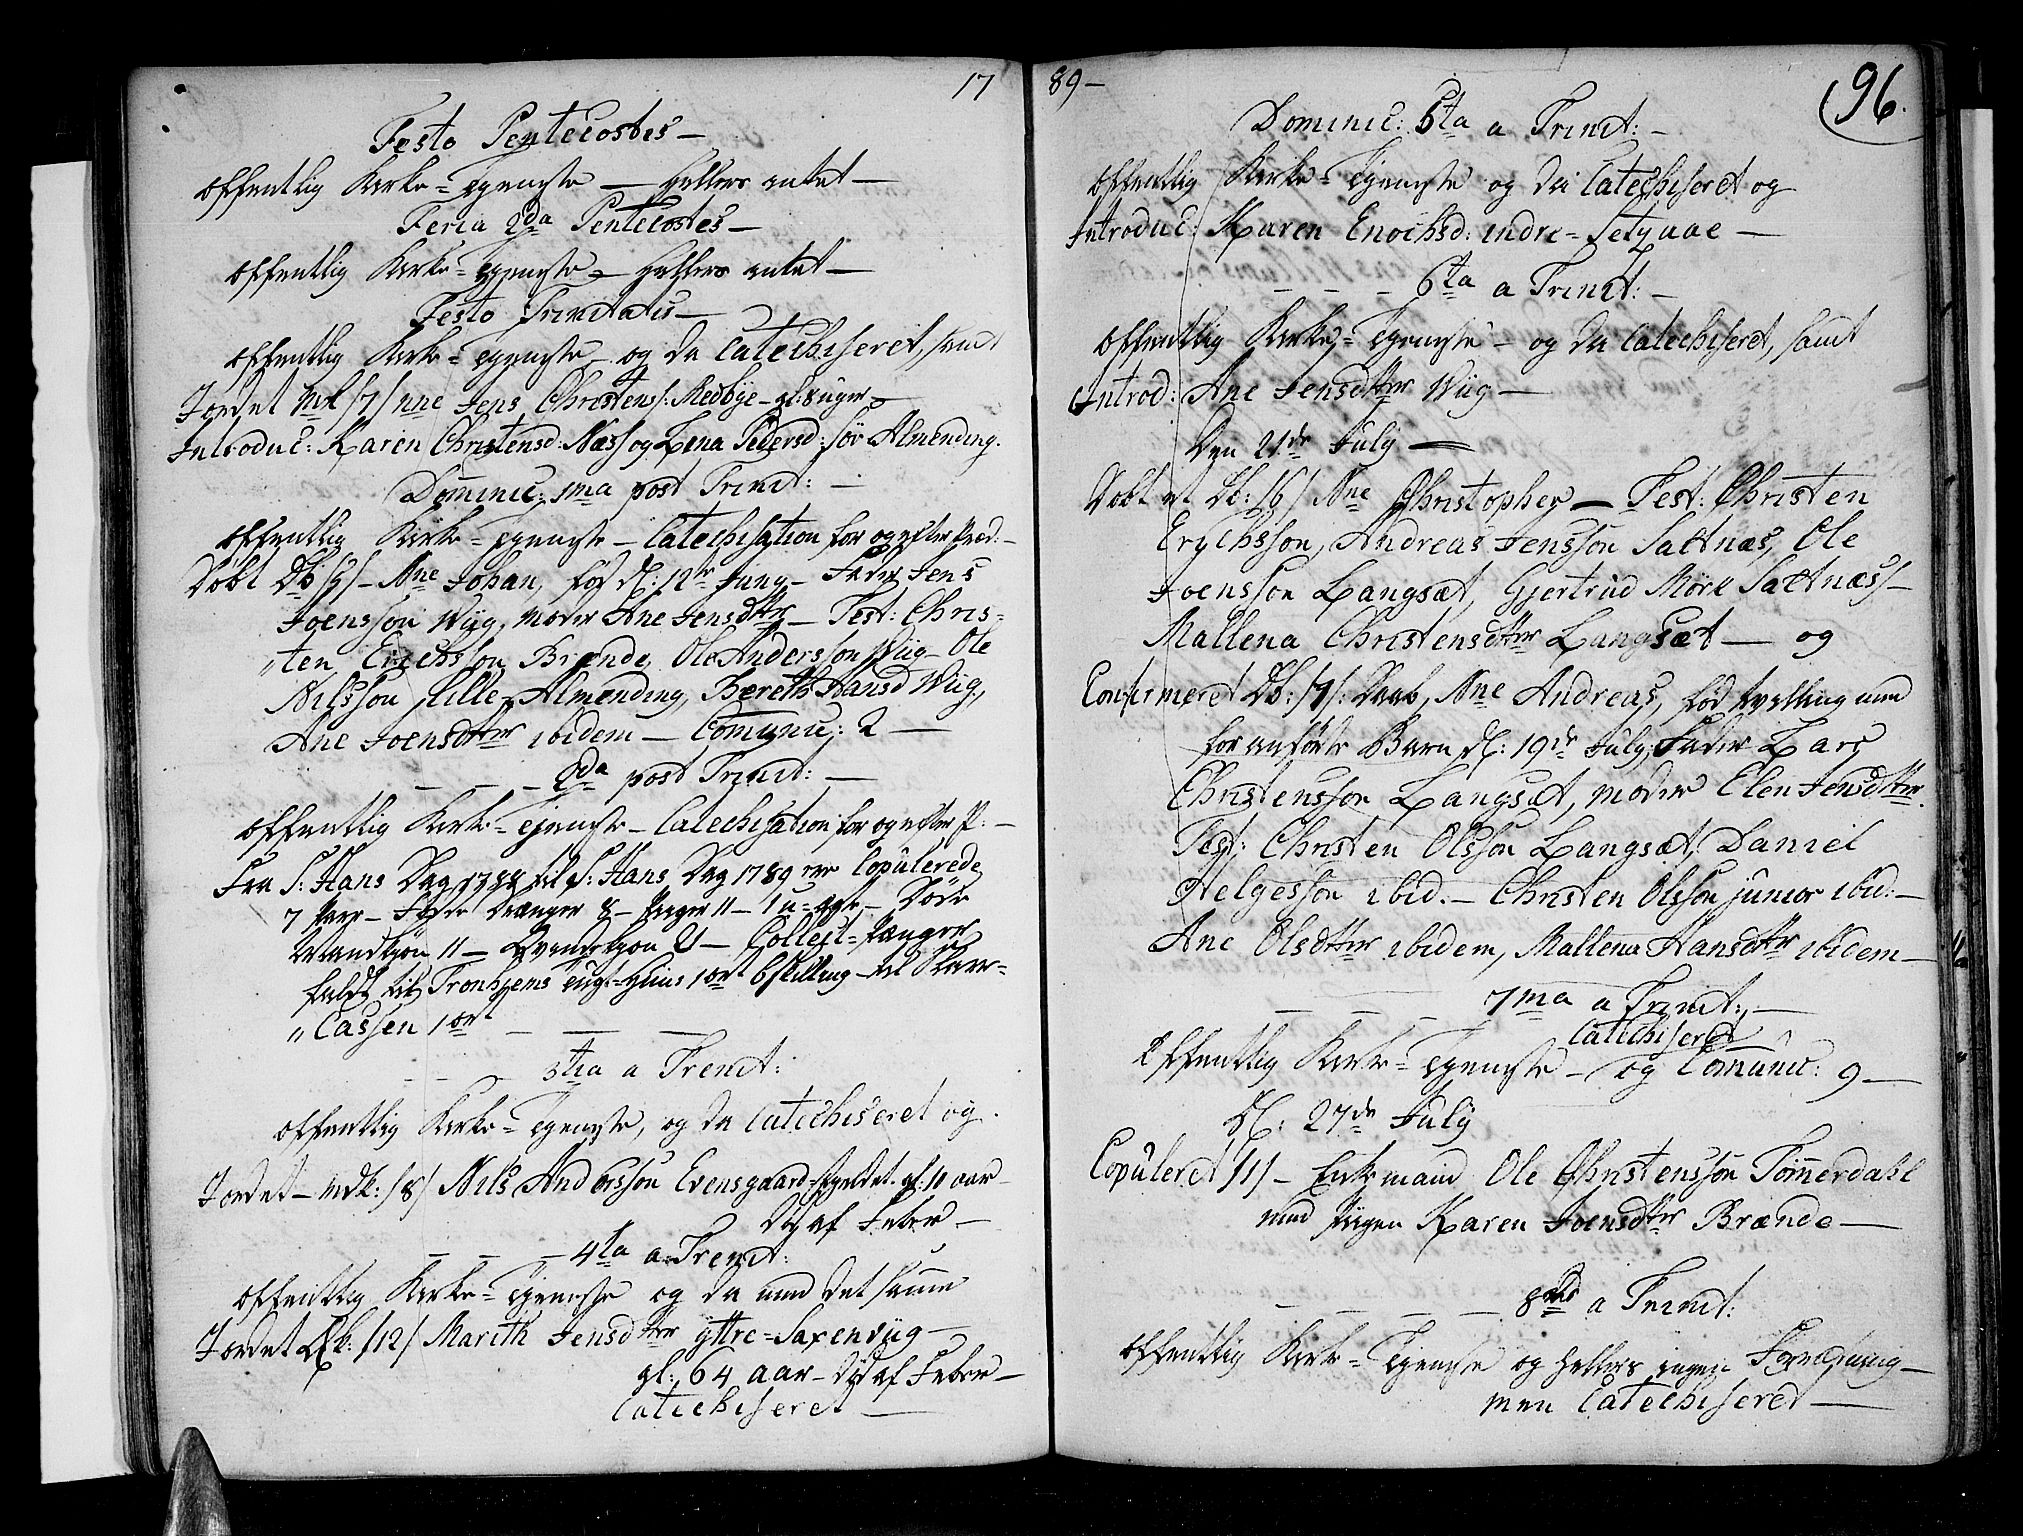 17
Festo Pentecostes —
offentlig Kirke-Tieneste — hellers intet —
Feria 2da Pentecostes —
offentlig Kirke-Tieneste — hellers intet —
Festo Trinitatis —
offentlig Kirke-Tieneste — og da Catechiseret, samt
Jordet Mk /7/ Nne Jens Christens: Medbye — gl: 8 uger —
Introduc: Karen Christensd: Næss og Lena Pedersd: sør Almending.
Dominic: 1ma post Trinit: —
offentlig Kirke-Tieneste — Catechisation for og efter Præd: —
Døbt Db /6/ — Nne Johan, fød d: 12te Juny — Fader Jens
Joensson Wiig, Moder Ane Jensdtter — Test: Chris-
"ten Erichsson Brænde, Ole Andersson Wiig — Ole
Nilsson Lille-Almending, Bereth Hansd Wiig,
Ane Joensdtter ibidem — Comunic: 2 —
— — — 2da post Trinit: —
offentlig Kirke-Tieneste — Catechisation for og efter P: —
Fra S: Hans Dag 1788 til S: Hans Dag 1789 ere Copulerede
7 Par — Fødde Drænger 8 — Piger 11 — 1 u-ægte — Døde
Mandkion 11 — Qvindekion 21 — Collect-Penger
faldt til Tronhiems Tugt-Huus 1 ort 6 skilling — til Skole-
"Cassen 1 ort — — —
— — — 3tia a Trinit:
offentlig Kirke-Tieneste, og da Catechiseret og
Jordet — Mdk: /8/ Nils Andersson Evensgaard gl: 11 aar
Død af Feber —
— — — 4ta a Trinit:
offentlig Kirke-Tieneste og da med det samme
Jordet Qk: /12/ Marith Jensdtter yttre-Saxenviig —
gl: 64 aar — Død af Feber —
Catechiseret —
89 —
96.
Dominic: 5ta a Trinit: —
offentlig Kirke-Tieneste og da Catechiseret og
Introduc: Karen Enochsd: indre-Setzaae —
— — — 6ta a Trinit: —
offentlig Kirke-Tieneste — og da Catechiseret, samt
Introd: Ane Jensdtter Wiig —
Den 21de July —
Døbt et Db: /6/ Nne Christopher — Test: Christen
Erichsson, Andreas Jensson Saltnæs, Ole
Joensson Langsæt, Gjertrud Mørk Saltnæss —
Mallena Christensdtter Langsæt — og
Confirmeret Db: /7/: Daab, Nne Andreas, fød tvelling med
for anførte Barn d: 19de July, Fader Lars
Christensson Langsæt, Moder Elen Jensdtter.
Test: Christen Olsson Langsæt, Daniel
Helgesson ibid. — Christen Olsson junior ibid: —
Ane Olsdtter ibidem, Mallena Hansdtter ibidem —
— — — 7ma a Trinit: —
Catechiseret
offentlig Kirke-Tieneste — og Comunic: 9 —
D: 27de July
Copuleret /1/ — Enkemand Ole Christensson Tømmerdahl
med Pigen Karen Joensdtter Brænde —
— — — — 8va a Trinit:
offentlig Kirke-Tieneste og hellers ingen Forretning —
men Catechiseret —